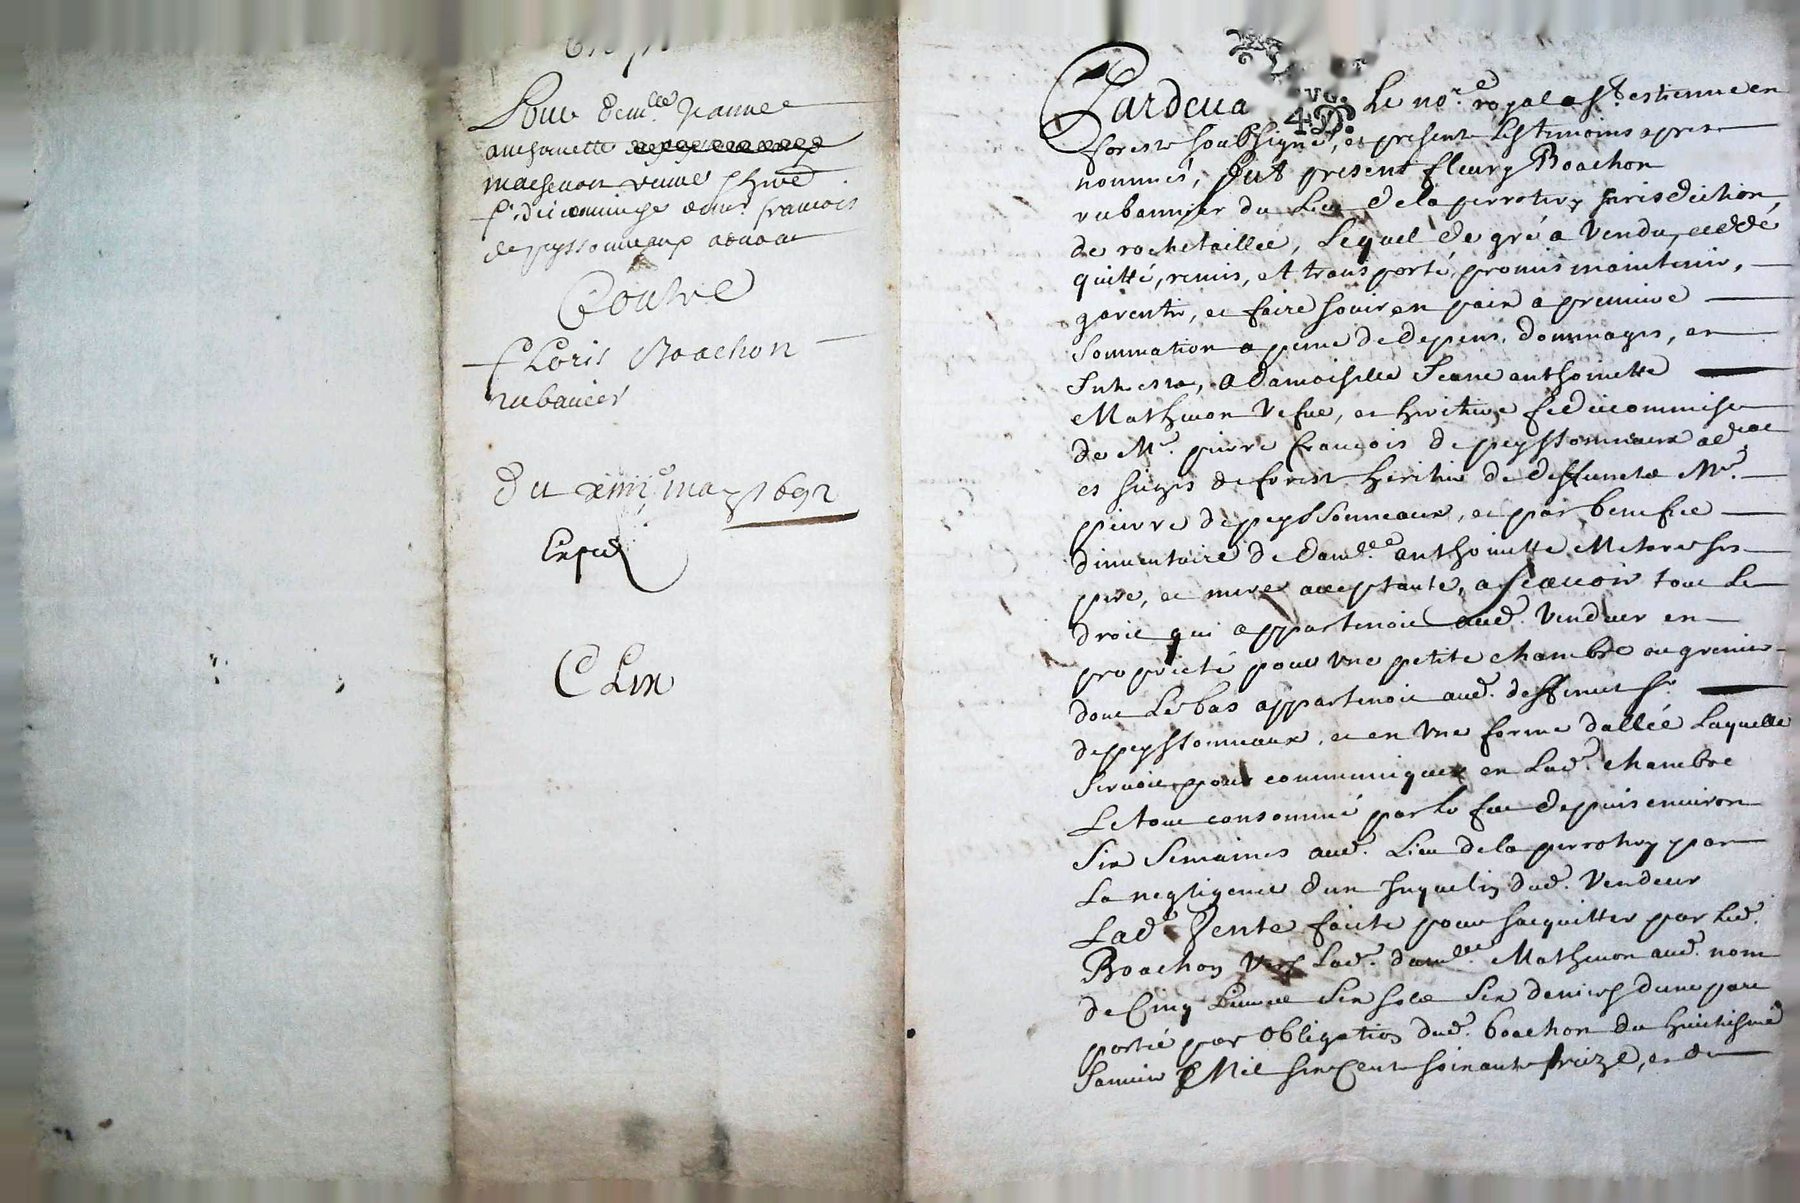 Pour dem.lle Jeanne
anthoinette
Mathevon veufve
fideicommise de mr francois
de peyssonneaux advocat
Contre
Floris Boachon
rubanier
du xiiii.e may 1692
Expedié
CLix
Pardeva Le no.re royal a St estienne en
forests soubsigné, et presents Les temoins apres
nommés, fut present fleury Boachon
rubannier du Lieu de la perrotiery jurisdiction
de rochetaillée, Lequel de gré a vendu, ceddé
quitté, remis, et transporté, promis maintenir,
garentir, et faire jouir en paix a premiere
sommation a peine de depens, dommages, et
Interests, a damoiselle Jeane anthoinette
Mathevon vefve, et heritiere fideicommise
de Mr. pierre francois de peyssonneaux ad.cat
es sieges de forest heritier de deffuncts Mr.
pierre de peyssonneaux, et par benefice
dinventaire de dam.lle anthoinette Metare ses
pere, et mere acceptante, a scavoir tout Le
droit qui appartenoit aud. vendeur en
proprieté pour une petite chambre ou grenier
dont Le bas appartenoit aud. deffunct sr.
de peyssonneaux, et en une forme dallée Laquelle
servoit pour communiquer en Lad. chambre
Le tout consommé par le feu depuis environ
six semaines aud. Lieu de la perrotiery par
La negligence dun Inquelin dud. vendeur
Lad. vente faite pour sacquitter par led.
Boachon vers Lad. dam.lle Mathevon aud. nom
de Cinq Livres six sols six deniers dune part
porté par obligation dud. boachon du huictiesme
Janvier Mil six Cent soixante seize, et de